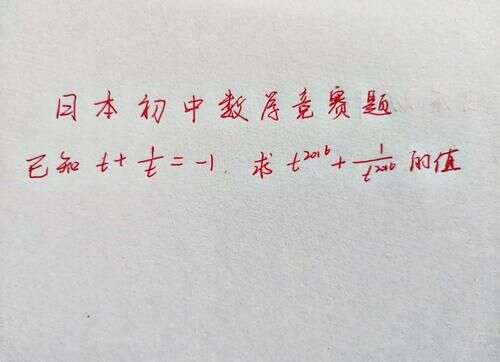 日本初中数学竞赛题
已知 t + 1/t = -1. 求 t^2016 + 1/t^2016 的值